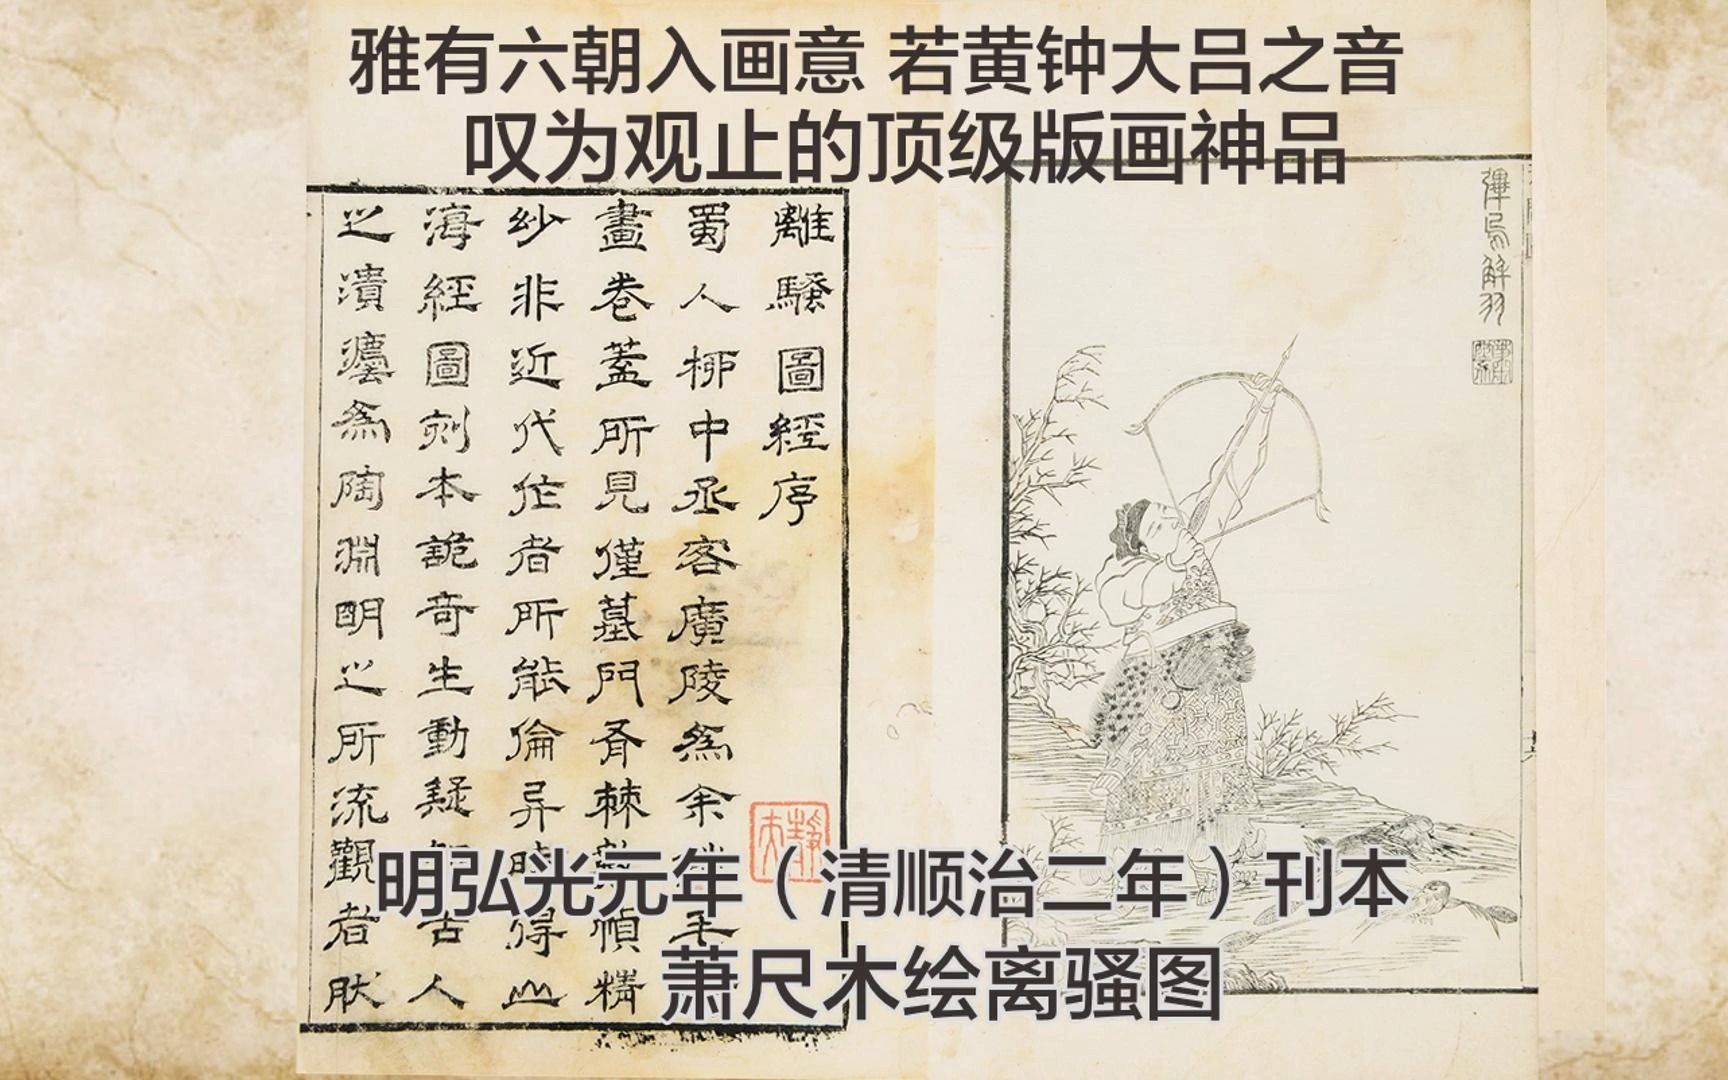 雅有六朝入画意 若黄钟大吕之音
叹为观止的顶级版画神品
彃烏解羽
離騷圖經序
蜀人栁中丞客廣陵為余
畫卷蓋所見僅墓門有棘幀精
紗非近代作者所能倫异時得山
海經圖刻本詭奇生動疑古人
之為陶淵明之所流觀者肰
明弘光元年（清顺治二年）刊本
萧尺木绘离骚图